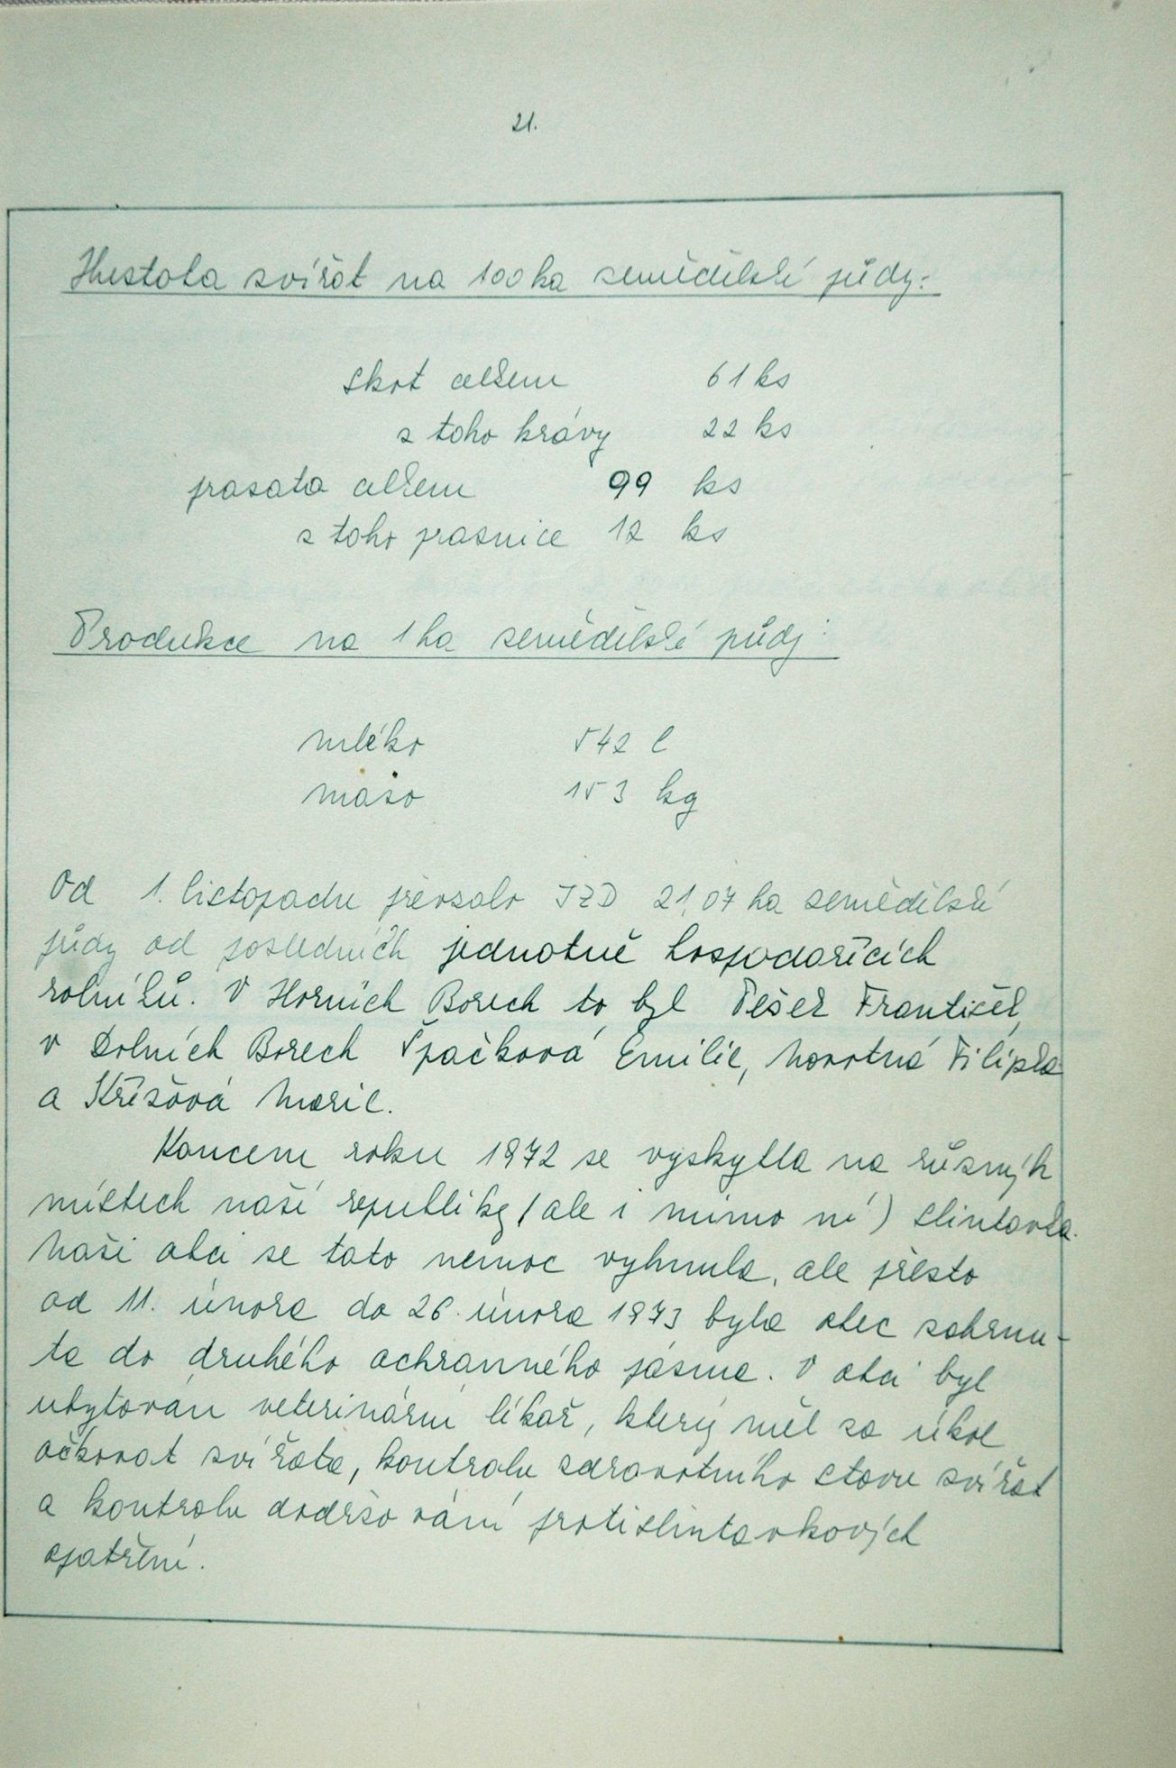 21.
Hustota zvířat na 100 ha zemědělské půdy:
Skot celkem 61 ks
z toho krávy 22 ks
prasata celkem 99 ks
z toho prasnice 12 ks
Produkce na 1 ha zemědělské půdy:
mléko 542 l
maso 153 kg
Od 1. listopadu převzalo JZD 21,07 ha zemědělské
půdy od posledních jednotně hospodařících
rolníků. V Horních Borech to byl Pešek František,
v Dolních Borech Špačková Emilie, Novotná Filipka
a Křížová Marie.
Koncem roku 1972 se vyskytla na různých
místech naší republiky (ale i mimo ni) slintavka.
Naší obci se tato nemoc vyhnula, ale přesto
od 11. února do 26. února 1973 byla obec zahrnu-
ta do druhého ochranného pásma. V obci byl
ubytován veterinární lékař, který měl za úkol
očkovat zvířata, kontrolu zdravotního stavu zvířat
a kontrolu dodržování protislintavkových
opatření.